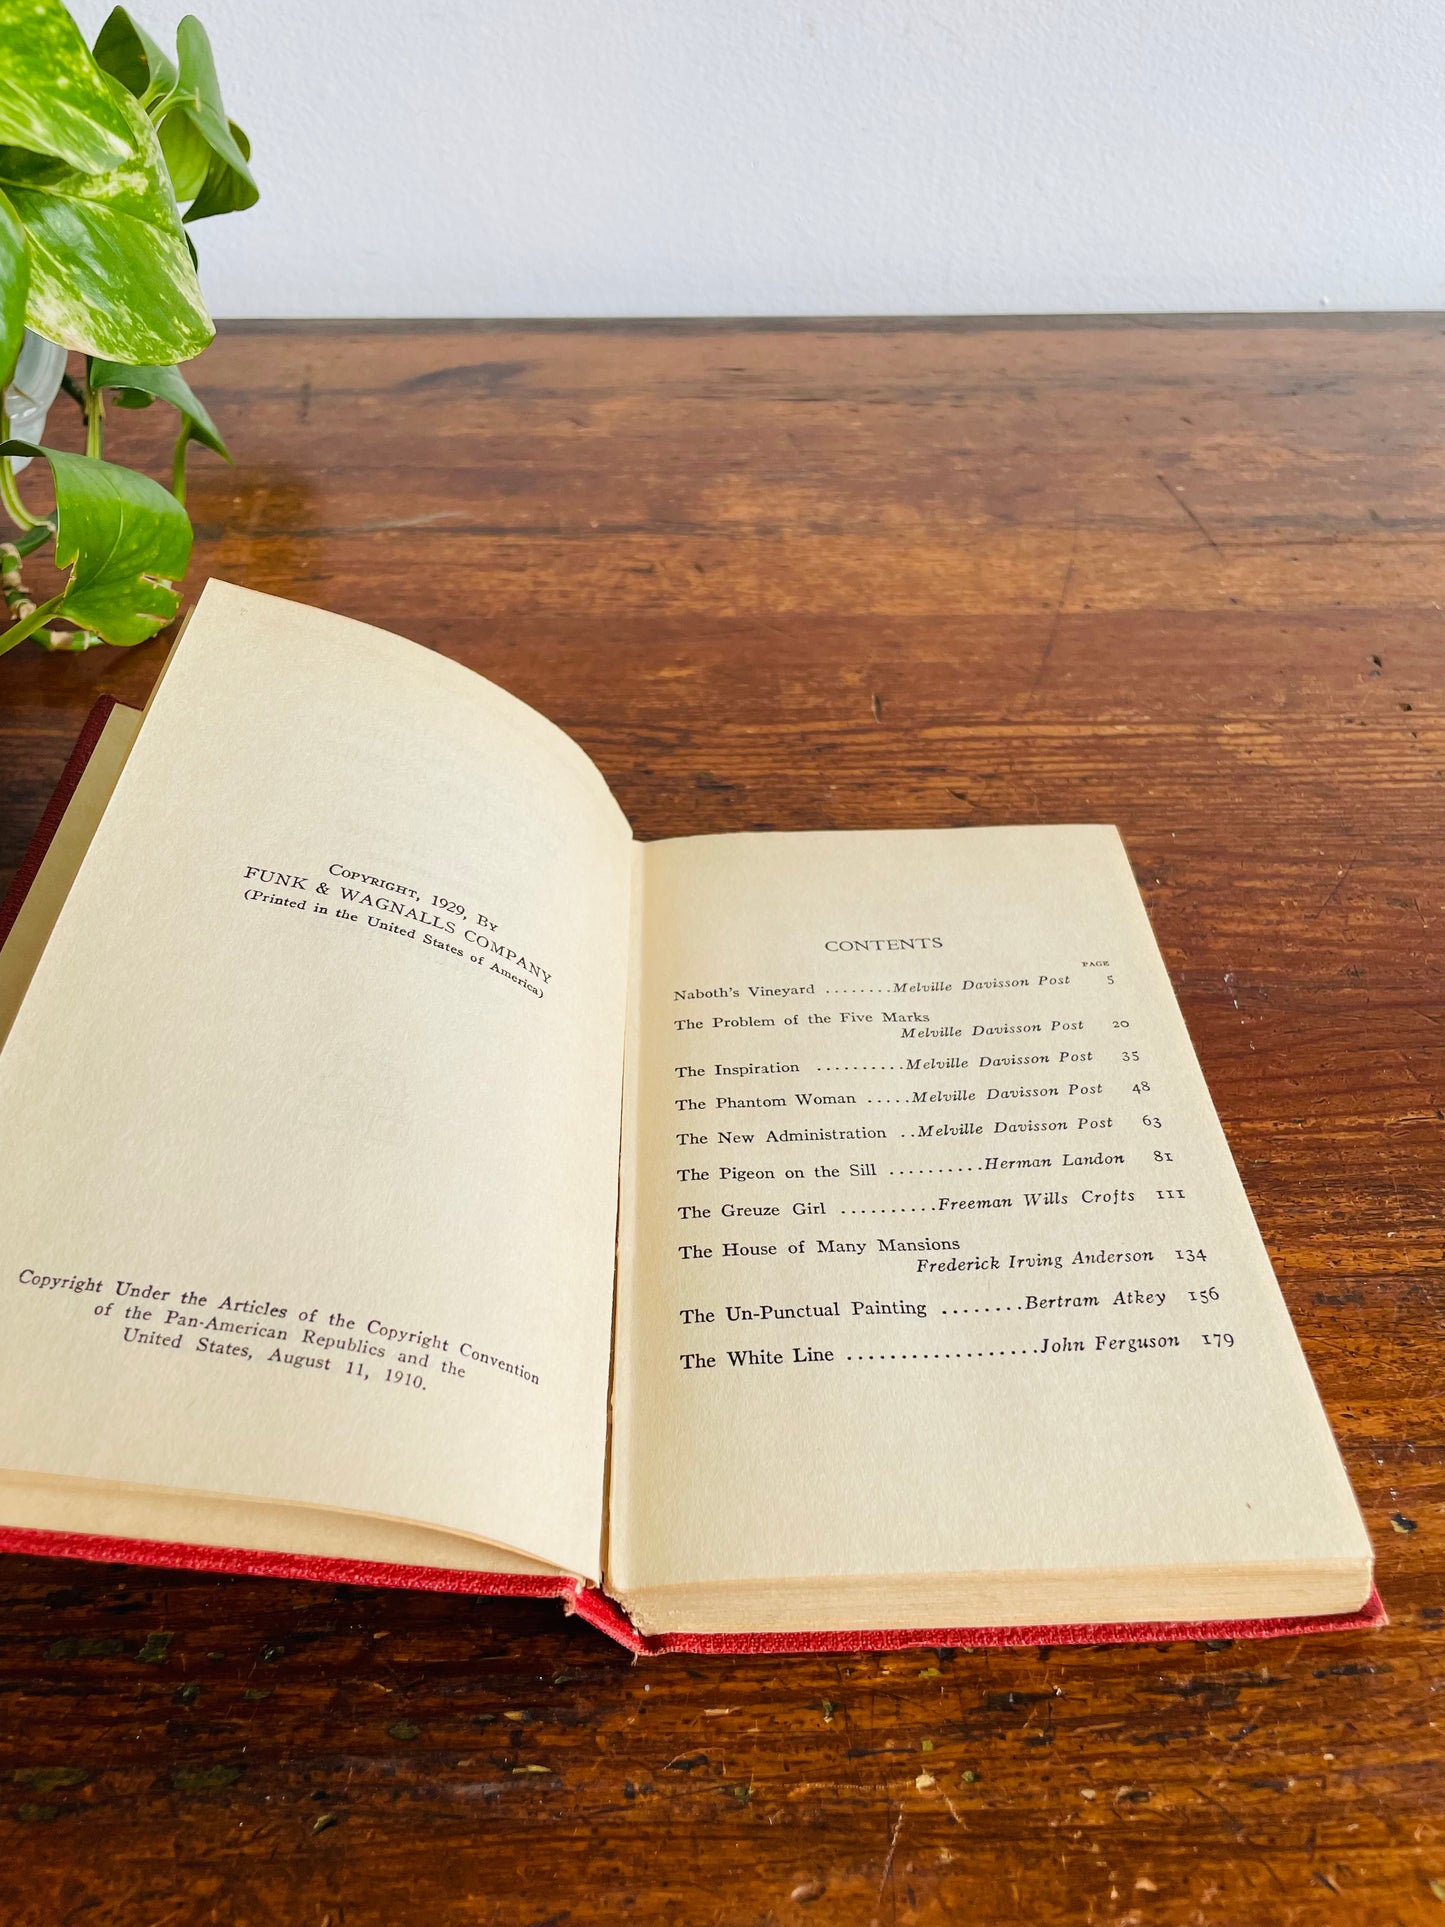 Copyright, 1929, By
FUNK & WAGNALLS COMPANY
(Printed in the United States of America)
Copyright Under the Articles of the Copyright Convention
of the Pan-American Republics and the
United States, August 11, 1910.
CONTENTS
PAGE
Naboth's Vineyard ........Melville Davisson Post 5
The Problem of the Five Marks
Melville Davisson Post 20
The Inspiration ..........Melville Davisson Post 35
The Phantom Woman .....Melville Davisson Post 48
The New Administration ..Melville Davisson Post 63
The Pigeon on the Sill ..........Herman Landon 81
The Greuze Girl ..........Freeman Wills Crofts 111
The House of Many Mansions
Frederick Irving Anderson 134
The Un-Punctual Painting ........Bertram Atkey 156
The White Line ..................John Ferguson 179